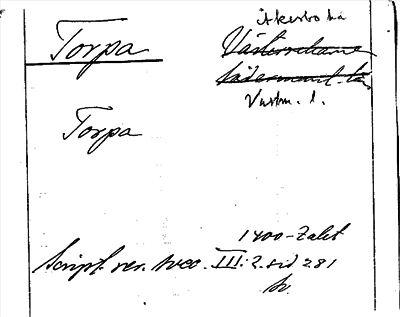 Torpa
Åkerbo hd
Västerrekarne
Södermanl. län
Vastm. l.
Torpa
1400-Zalet
Script. rer. sveo. III: 2. sid 281